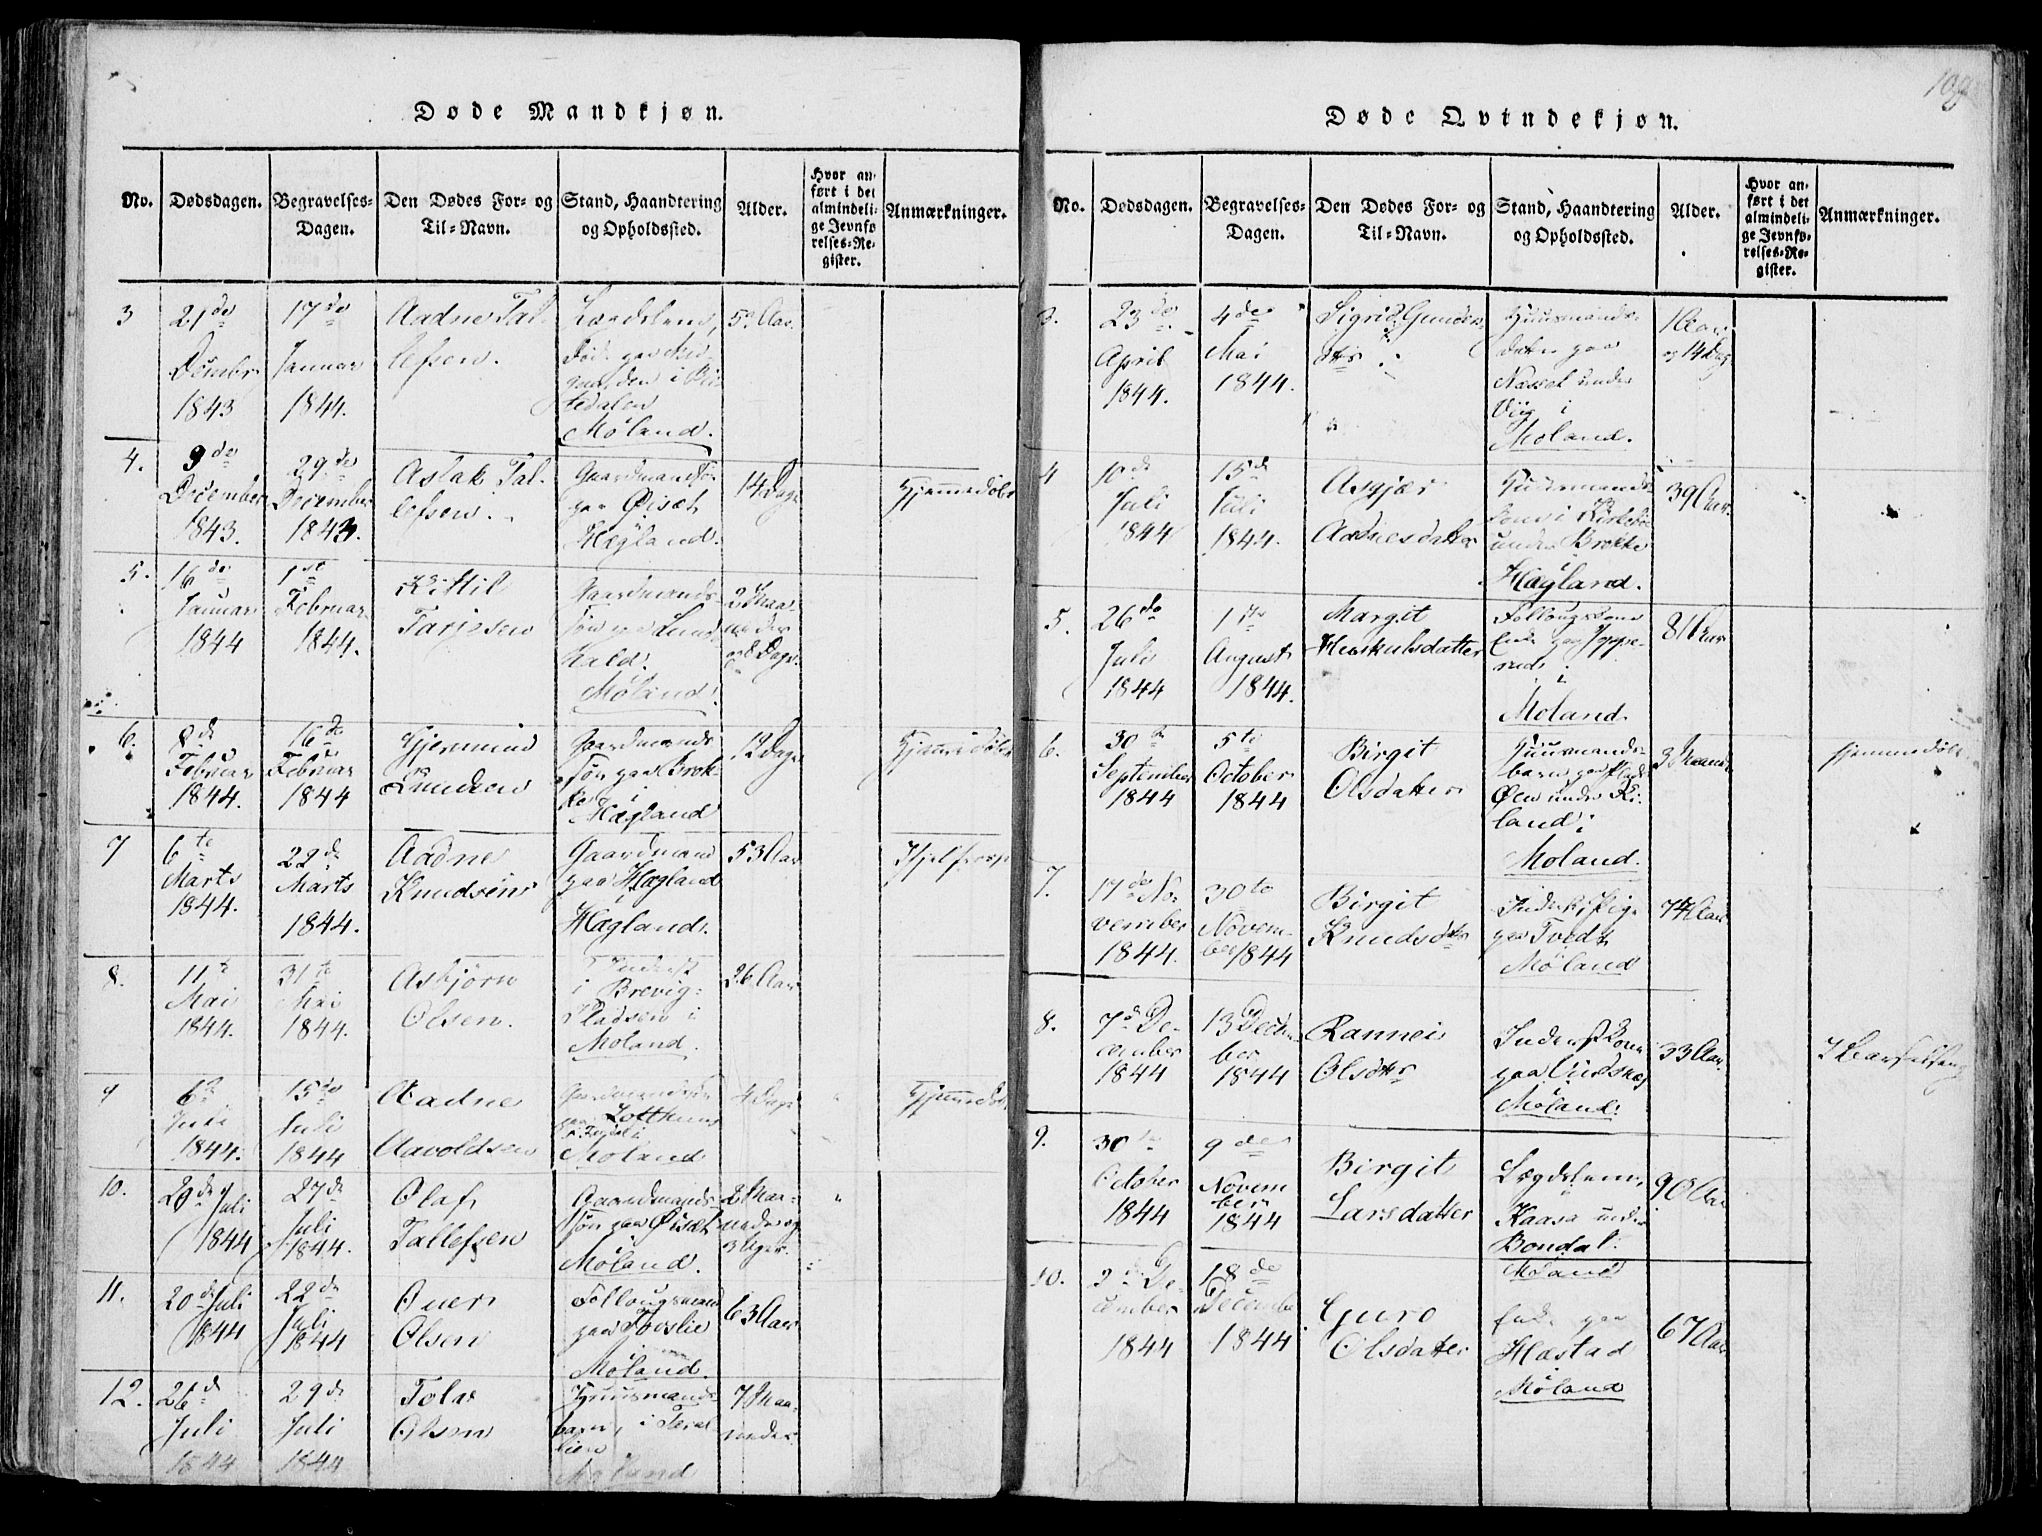 109
Døde Mandkjøn.
No. Dødsdagen. Begravelses-Dagen. Den Dødes For- og Til-Navn. Stand, Haandtering og Opholdssted. Alder. Hvor anført i det almindelige Jevnførelses-Register. Anmærkninger.
3
21de
Decembr
1843
17de
Januar
1844.
Aadne Tal-
lefsen.
Møland.
4.
9de
December
1843.
29de
December
1843.
Aslak Tal-
lefsen.
Gaardmandssøn
paa Øisæt
Hægland.
14 Dage
Hjemmedøbt
5.
16de
Januar
1844
1ste
Februar
1844.
Kittil
Tarjesen
Gaardmands-
Søn paa Lund-
Møland.
2 Maa-
neder
6.
8de
Februar
1844.
16de
Februar
1844
Gjermund
Knudsen
Gaardmands
Søn paa Brok-
ke i
Hægland
12 Dage
Hjemmedøbt
7
6te
Marts
1844.
22de
Marts
1844.
Aadne
Knudsen
Gaardmand
paa Hægland
Hægland.
53 Aar
8.
11te
Mai
1844.
31te
Mai
1844.
Asbjørn
Olsen.
Inderst
i Brevig-
Pladsen i
Moland.
26 Aar
9
6te
Juli
1844.
15de
Juli
1844
Aadne
Aavoldsen
Møland
4 Dage
Hjemmedøbt
10.
20de Juli
1844
27de
Juli
1844.
Olaf
Tallefsen
Gaardmands-
søn paa Øisæt
Møland.
2 Maa-
neder og
3 Uger.
11.
20de Juli
1844
22de
Juli
1844
Ouer
Olsen
Føllougsmand
paa Fosslie
Møland.
63 Aar
12.
26de
Juli
1844
29de
Juli
1844
Tolar
Olsen
Huusmands-
barn i
lien
Møland
7 Maa-
neder.
Døde Qvindekjøn.
No. Dødsdagen. Begravelses-Dagen. Den Dødes For- og Til-Navn. Stand, Haandtering og Opholdssted. Alder. Hvor anført i det almindelige Jevnførelses-Register. Anmærkninger.
3.
23de
April
1844.
4de
Mai
1844.
Sigrid Gunders
dtr
Huusmands-
datter paa
Næset under
Viig i
Moland.
1 Aar
og 14 Dag
4
10de
Juli
1844
15de
Juli
1844.
Asgjær
Aadnesdatter
Huusmands
Kone i
under Brokke
Hægland.
39 Aar.
5.
26de
Juli
1844
1ste
August
1844.
Margit
Herkulsdatter
Føllougskone
Enke paa
Moland.
81 Aar
6.
30te
September
1844
5te
October
1844
Birgit
Olsdatter
Huusmands-
barn paa Plads
Øen under Ri-
land i
Moland.
3 Maaned
Hjemmedøbt
7.
17de No-
vember
1844.
30te
Novem-
ber 1844
Birgit
Knudsdtr
Inderst, Pige
paa Tvedt
Møland
74 Aar
8.
7de De-
cember
1844
13 Decem-
ber
1844
Rannei
Olsdtr
Inderst Kone
paa
Møland.
33 Aar
I Barselseng
9.
30te
October
1844
9de
Novem
ber
1844
Birgit
Larsdatter
Lægdslem,
Kaasa under
Bondal.
Møland
90 Aar
10.
De-
cember
1844
18de
December
1844
Guro
Olsdatter
Enke paa
Hæstad
Møland
67 Aar